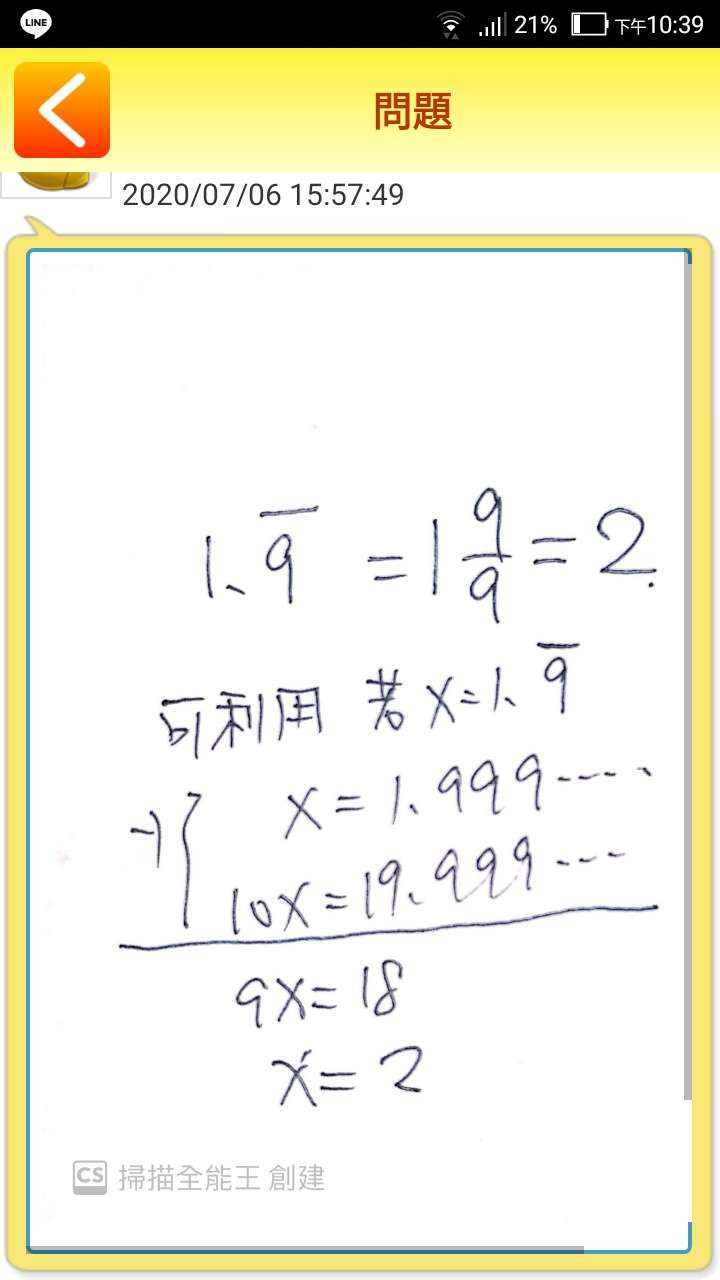 LINE
21% 下午10:39
問題
2020/07/06 15:57:49
1.9̅ = 1 9/9 = 2.
可利用 若 x=1.9̅
-) { x = 1.999-----
10x = 19.999---
9x = 18
x = 2
CS 掃描全能王 創建